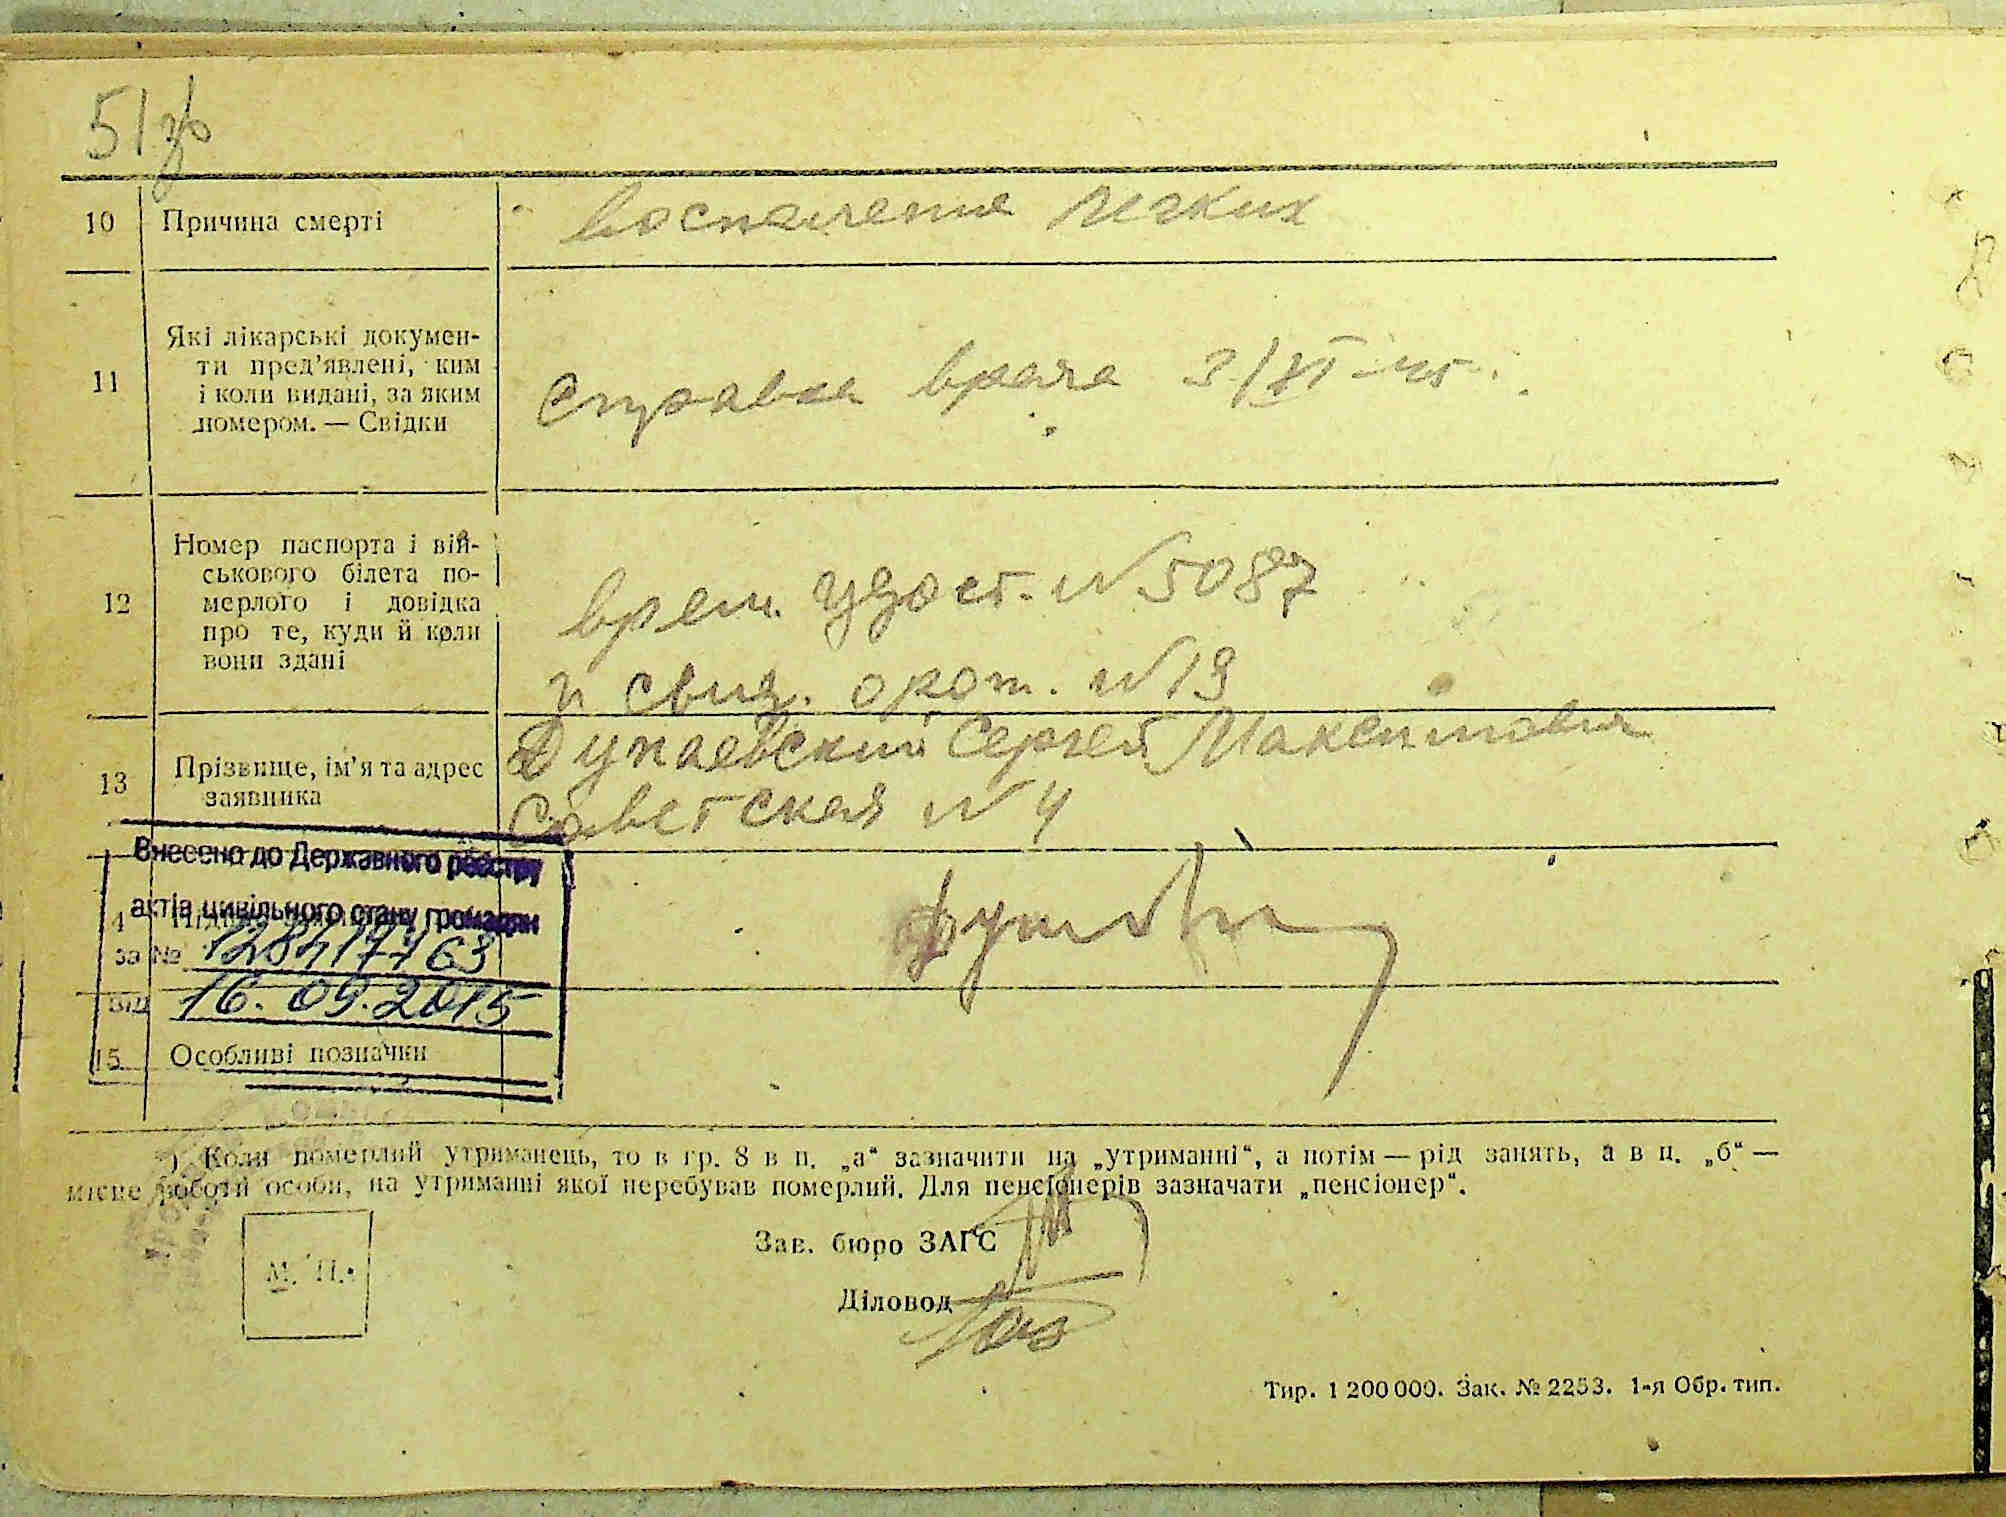 51
10 Причина смерті
воспаление легких
11 Які лікарські докумен-
ти пред’явлені, ким
і коли видані, за яким
номером. — Свідки
Справка врача 3/XI-45
12 Номер паспорта і вій-
ськового білета по-
мерлого і довідка
про те, куди й коли
вони здані
врем. удост. N 5087
и свид. N 19
13 Прізвище, ім’я та адрес
заявника
Дунаевский Сергей Максимович
Советская N 4
Внесено до Державного реєстру
актів цивільного стану громадян
14
за № 1284177763
від 16.09.2015
15 Особливі позначки
) Коли померлий утриманець, то в гр. 8 в п. „а“ зазначити на „утриманні“, а потім — рід занять, а в п. „б“ —
місце роботи особи, на утриманні якої перебував померлий. Для пенсіонерів зазначати „пенсіонер“.
М. П.
Зав. бюро ЗАГС
Діловод
Тир. 1 200 000. Зак. № 2253. 1-я Обр. тип.